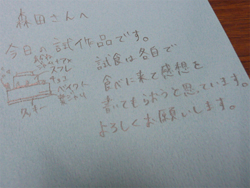 森田さんへ
今日の試作品です。
試食は各自で
食べに来て感想を
書いてもらおうと思っています。
よろしくお願いします。
スフレ
チョコ
ベイクド